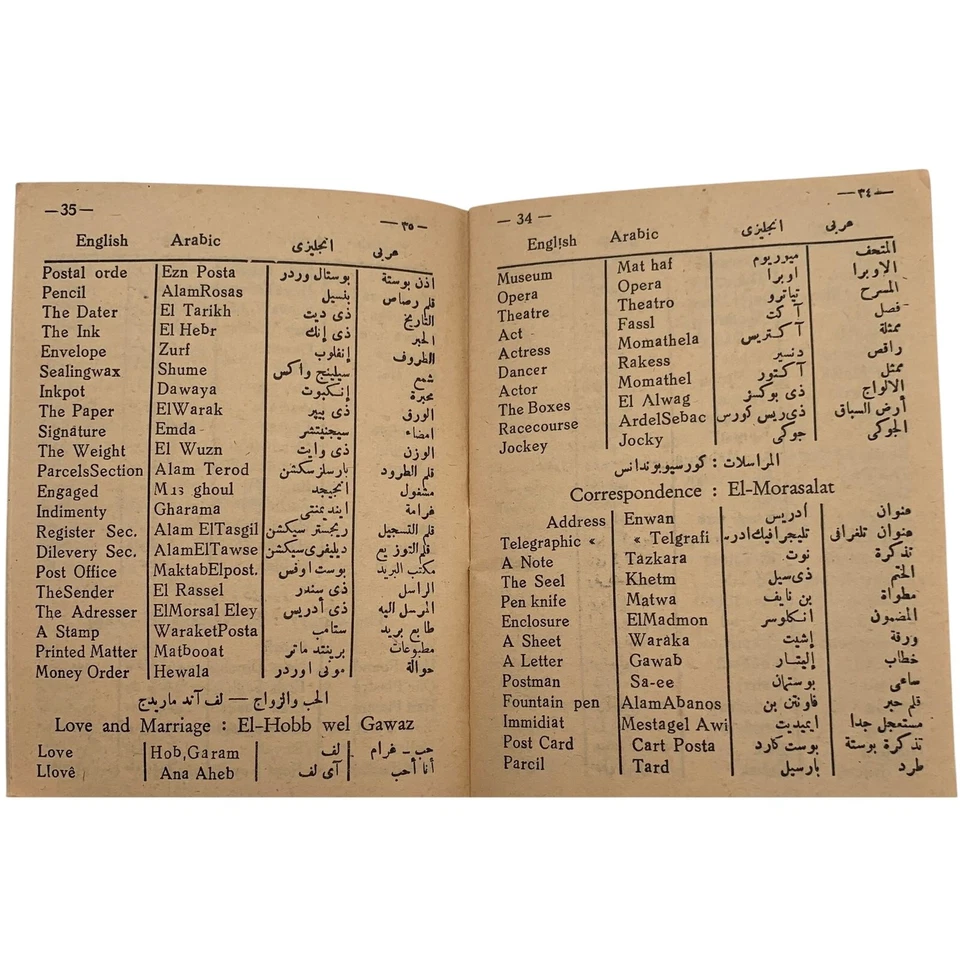 — 34 — — ٣٤ —
English Arabic انجليزى عربى
Museum Mat haf ميوريوم المتحف
Opera Opera اوبرا الاوبرا
Theatre Theatro تياترو المسرح
Act Fassl آ كت فصل
Actress Momathela آ كتريس ممثلة
Dancer Rakess دنسير راقص
Actor Momathel آ كتور ممثل
The Boxes El Alwag ذى بوكسز الالواج
Racecourse ArdelSebac ذى ريس كورس أرض السباق
Jockey Jocky جوكى الجوكى
المراسلات : كورسيوبوندانس
Correspondence : El-Morasalat
Address Enwan أدريس عنوان
Telegraphic « « Telgrafi تليجرافيك ادر- عنوان تلغرافى
A Note Tazkara نوت تذكرة
The Seel Khetm ذى سيل الختم
Pen knife Matwa بن نايف مطواة
Enclosure ElMadmon انكلوسر المضمون
A Sheet Waraka إشيت ورقة
A Letter Gawab إليتار خطاب
Postman Sa-ee بوستمان ساعى
Fountain pen AlamAbanos فاونتن بن قلم حبر
Immidiat Mestagel Awi ايميديت مستعجل جدا
Post Card Cart Posta بوست كارد تذكرة بوستة
Parcil Tard بارسيل طرد
— 35 — — ٣٥ —
English Arabic انجليزى عربى
Postal orde Ezn Posta بوستال وردر اذن بوستة
Pencil AlamRosas بنسيل قلم رصاص
The Dater El Tarikh ذى ديت التاريخ
The Ink El Hebr ذى إنك الحبر
Envelope Zurf إنفلوب الظروف
Sealingwax Shume سيلينج واكس شمع
Inkpot Dawaya إنكبوت محبرة
The Paper ElWarak ذى بيبر الورق
Signature Emda سيجنيتشر امضاء
The Weight El Wuzn ذى وايت الوزن
ParcelsSection Alam Terod بارسلز سكشن قلم الطرود
Engaged Mas ghoul انجيجد مشغول
Indimenty Gharama اينديمنتى غرامة
Register Sec. Alam ElTasgil ريجستر سيكشن قلم التسجيل
Dilevery Sec. AlamElTawse ديليفرى سيكشن قلم التوزيع
Post Office MaktabElpost. بوست اوفس مكتب البريد
TheSender El Rassel ذى سندر الراسل
The Adresser ElMorsal Eley ذى أدريس المرسل اليه
A Stamp WaraketPosta ستامب طابع بريد
Printed Matter Matbooat برينتد ماتر مطبوعات
Money Order Hewala مونى اوردر حوالة
الحب والزواج — لف آند ماريدج
Love and Marriage : El-Hobb wel Gawaz
Love Hob,Garam لف حب - غرام
Llovê Ana Aheb آى لف أنا أحب